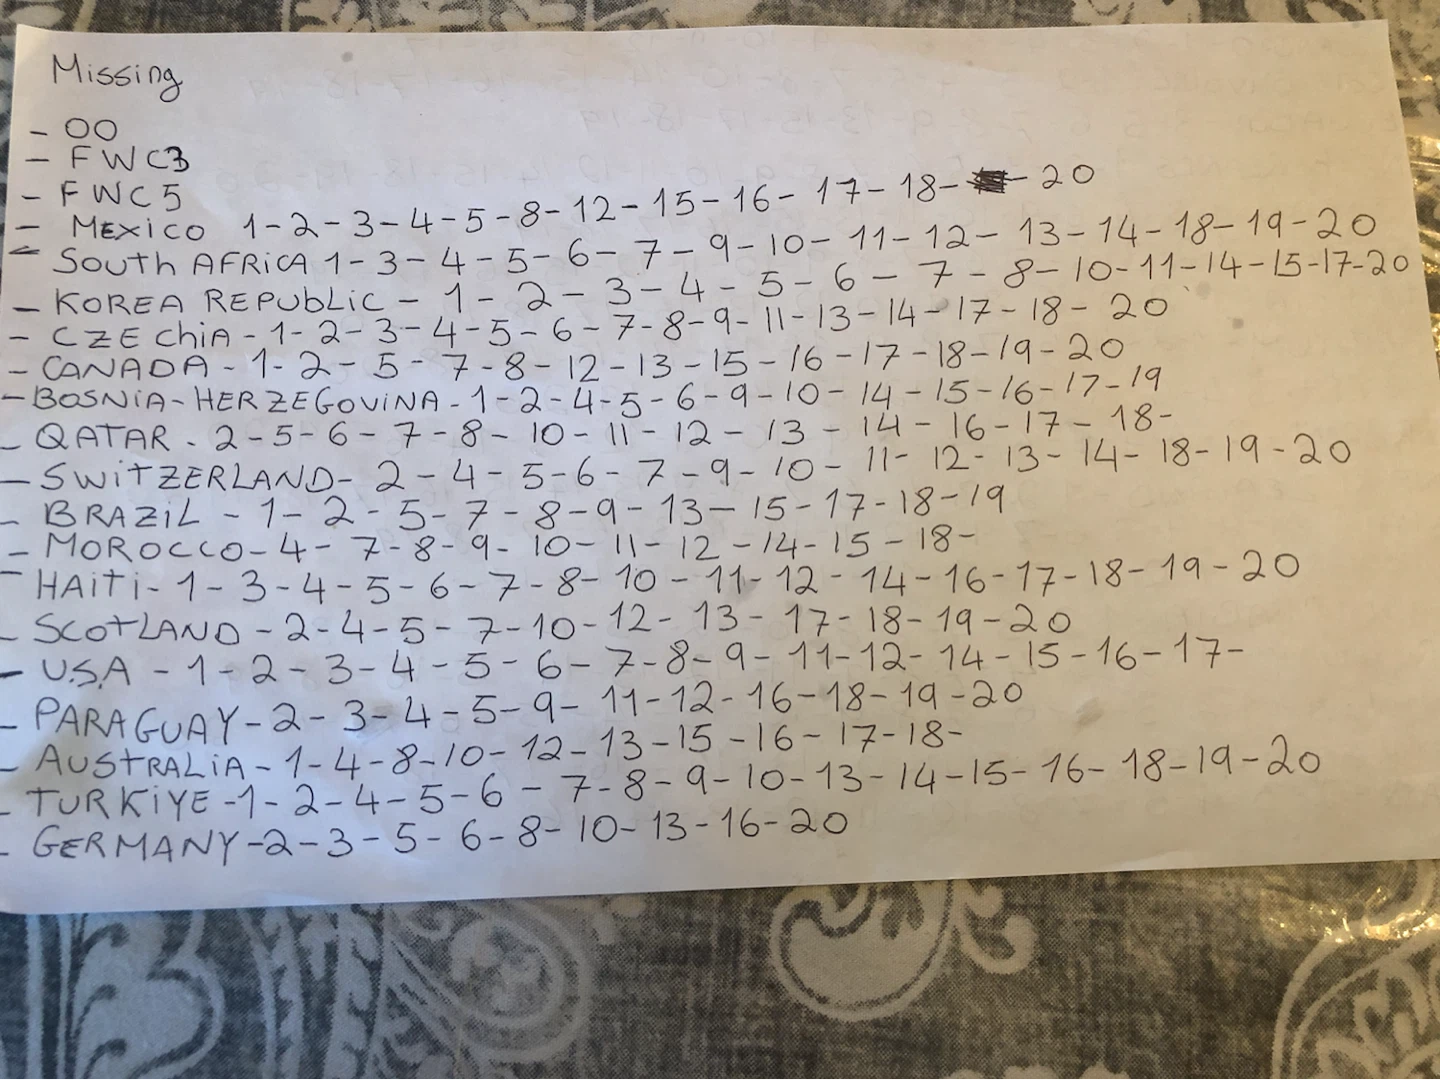 Missing
- 00
- FWC3
- FWC5
- MEXICO 1-2-3-4-5-8-12-15-16-17-18- - 20
- South AFRICA 1-3-4-5-6-7-9-10-11-12-13-14-18-19-20
- KOREA REPUBLIC - 1-2-3-4-5-6-7-8-10-11-14-15-17-20
- CZEChiA-1-2-3-4-5-6-7-8-9-11-13-14-17-18-20
- CANADA-1-2-5-7-8-12-13-15-16-17-18-19-20
- BOSNiA-HERZEGOViNA-1-2-4-5-6-9-10-14-15-16-17-19
- QATAR-2-5-6-7-8-10-11-12-13-14-16-17-18-
- SWiTZERLAND-2-4-5-6-7-9-10-11-12-13-14-18-19-20
- BRAZiL-1-2-5-7-8-9-13-15-17-18-19
- MOROCCO-4-7-8-9-10-11-12-14-15-18-
- HAiTi-1-3-4-5-6-7-8-10-11-12-14-16-17-18-19-20
- SCOtLAND-2-4-5-7-10-12-13-17-18-19-20
- U.S.A-1-2-3-4-5-6-7-8-9-11-12-14-15-16-17-
- PARAGUAY-2-3-4-5-9-11-12-16-18-19-20
- AUStRALiA-1-4-8-10-12-13-15-16-17-18-
- TURKiYE-1-2-4-5-6-7-8-9-10-13-14-15-16-18-19-20
- GERMANY-2-3-5-6-8-10-13-16-20